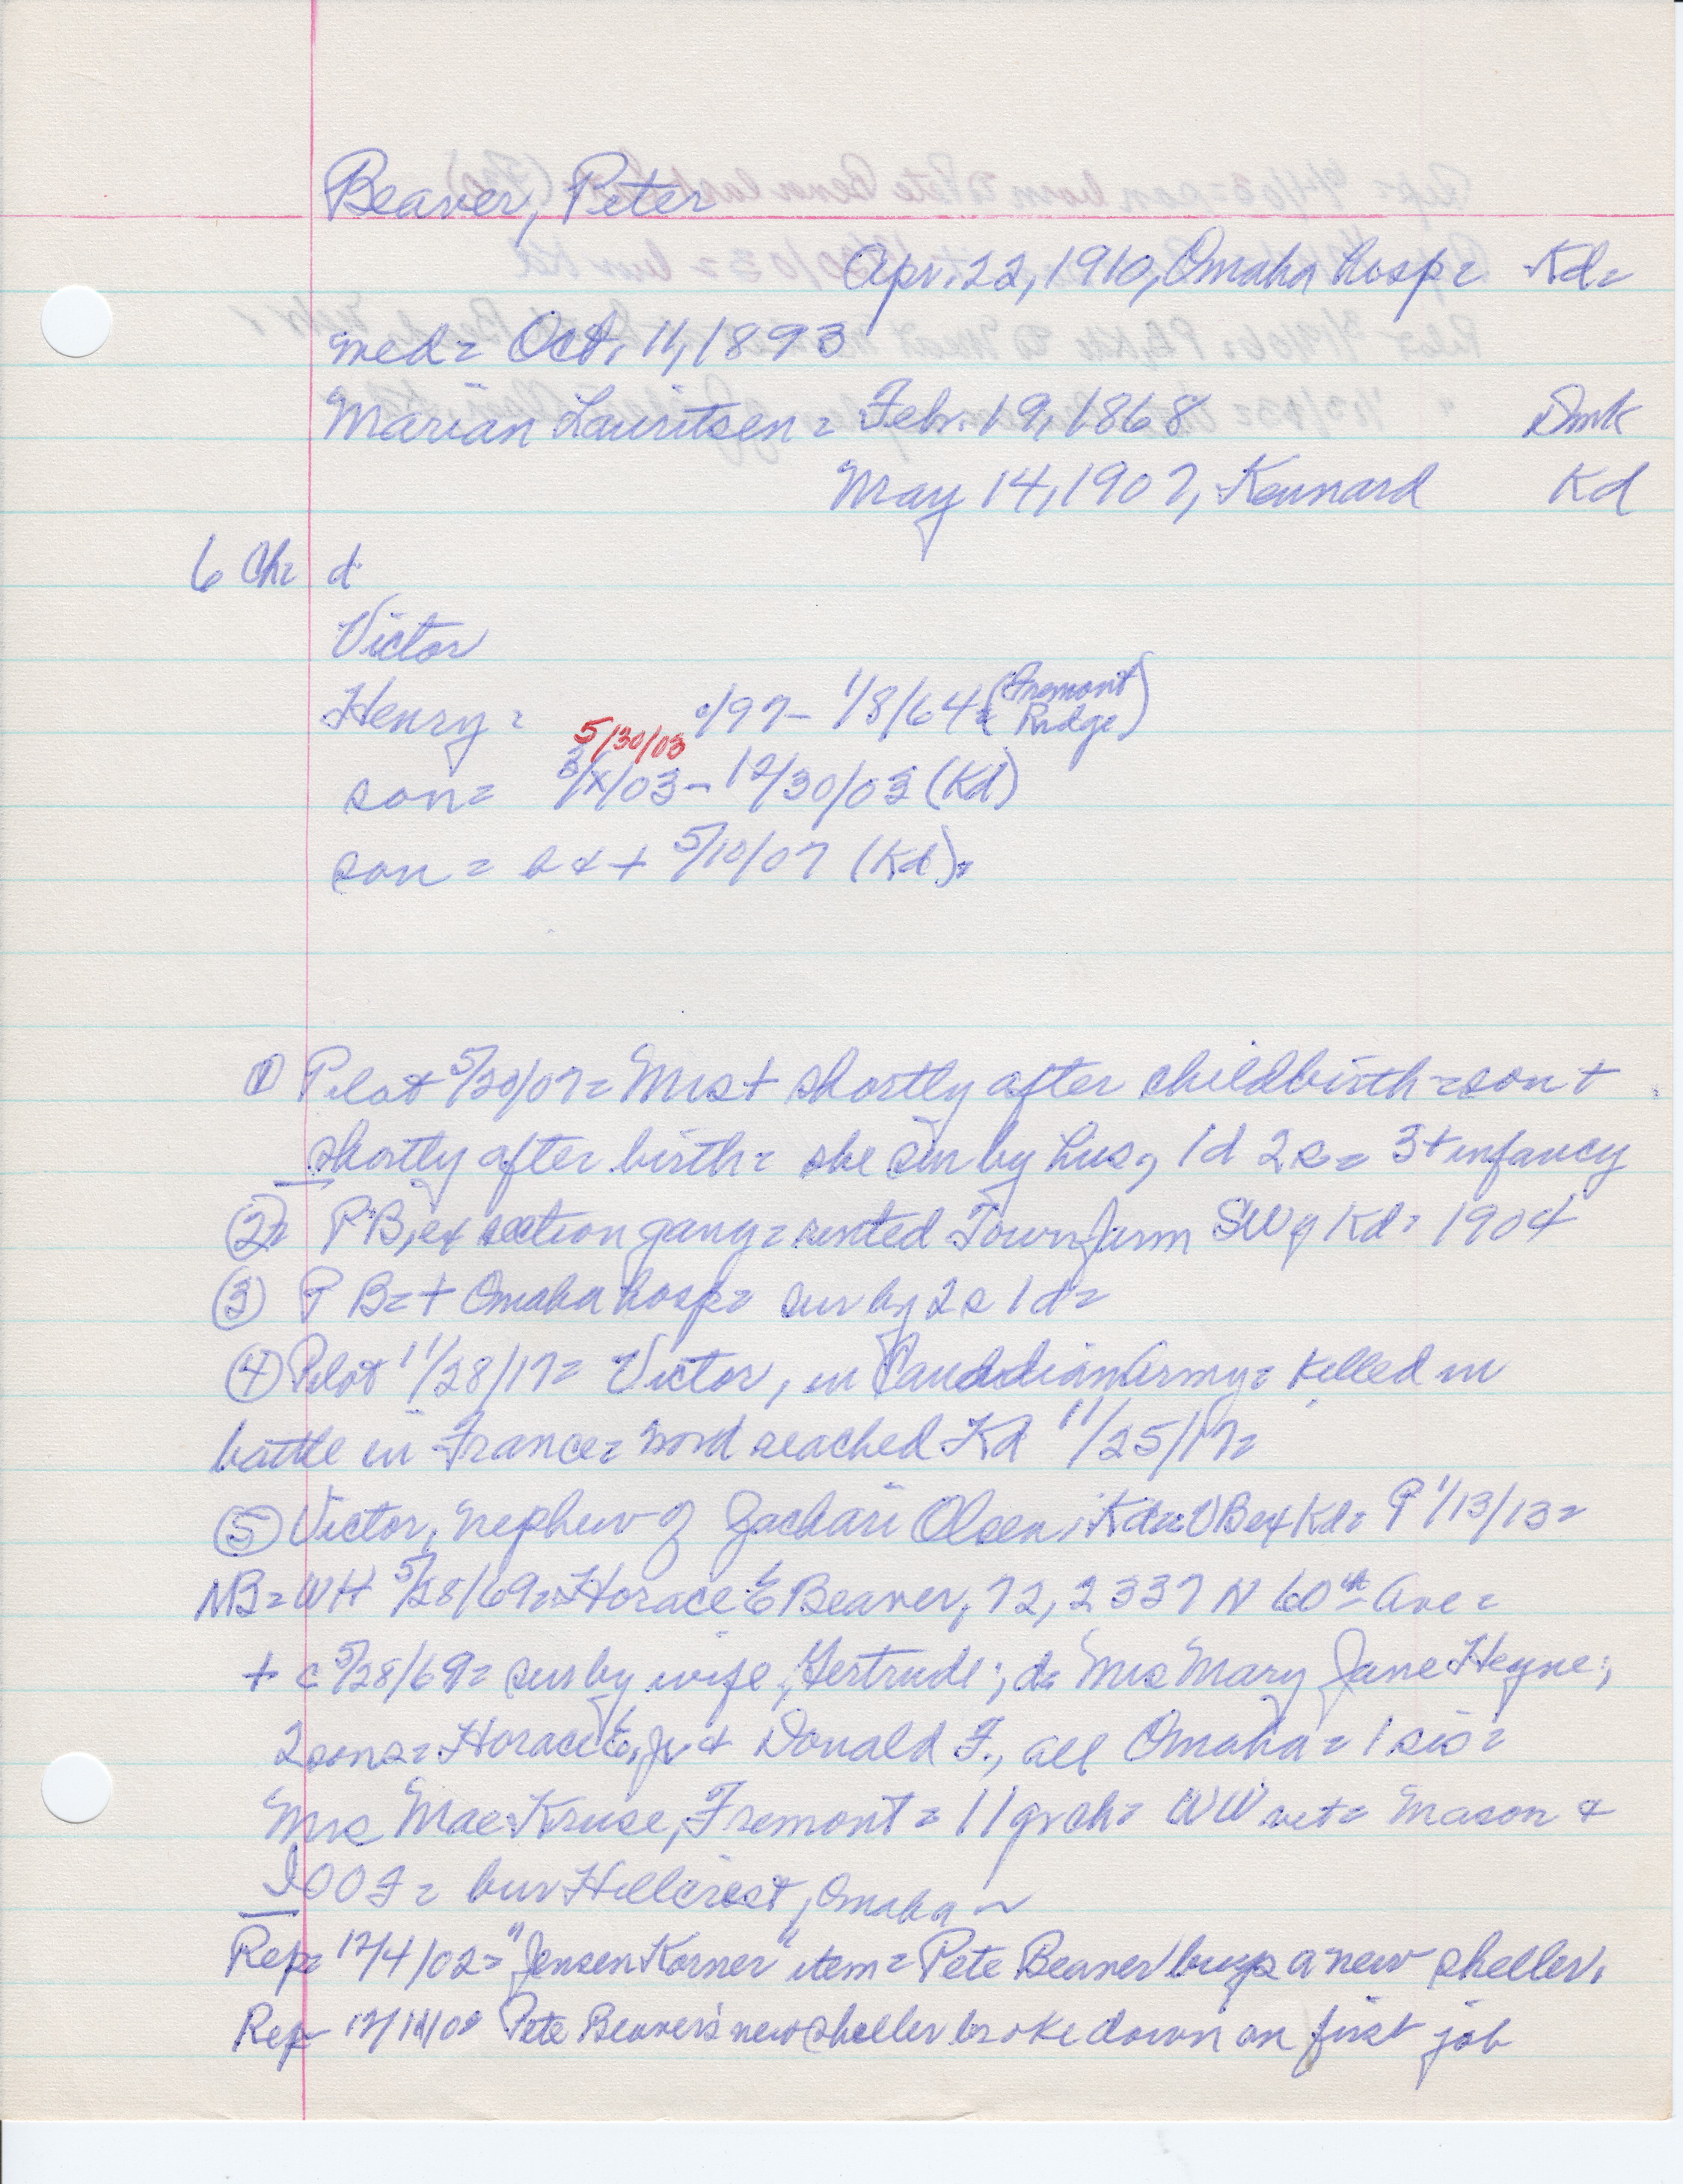 Beaver, Peter
Apr. 22, 1910, Omaha hosp= Kd=
med= Oct. 11, 1893
Marian Lauritsen = Feb. 19, 1868 Dmk
May 14, 1907, Kennard Kd
6 Ch= d
Victor
Henry = /97- 1/8/64= (Fremont Ridge)
5/30/03
son= 3/x/03- 12/30/03 (Kd)
son = b & + 5/10/07 (Kd)=
① Pilot 5/30/07= Mrs + shortly after childbirth = son +
shortly after birth= she sur by hus, 1d 2s= 3 + infancy
②= PB, ex section gang= rented Town farm SW of Kd= 1904
③ P B= + Omaha hosp= sur by 2s 1d=
④ Pilot 11/28/17= Victor, in Canadian Army= killed in
battle in France= word reached Kd 11/25/17=
⑤ Victor, nephew of Zachari Olsen, Kd= VB ex Kd= P 1/13/13=
NB= WH 5/28/69= Horace E Beaver, 72, 2337 N 60th Ave=
+ c 5/28/69= sur by wife, Gertrude; d= Mrs Mary Jane Heyne;
2 sons= Horace E, Jr & Donald F., all Omaha= 1 sis=
Mrs Mae Kruse, Fremont= 11 grch= WW vet= Mason &
IOOF= bur Hillcrest, Omaha ~
Rep= 12/4/02= "Jensen Korner" item= Pete Beaver buys a new sheller.
Rep Pete Beaver's new sheller broke down on first job